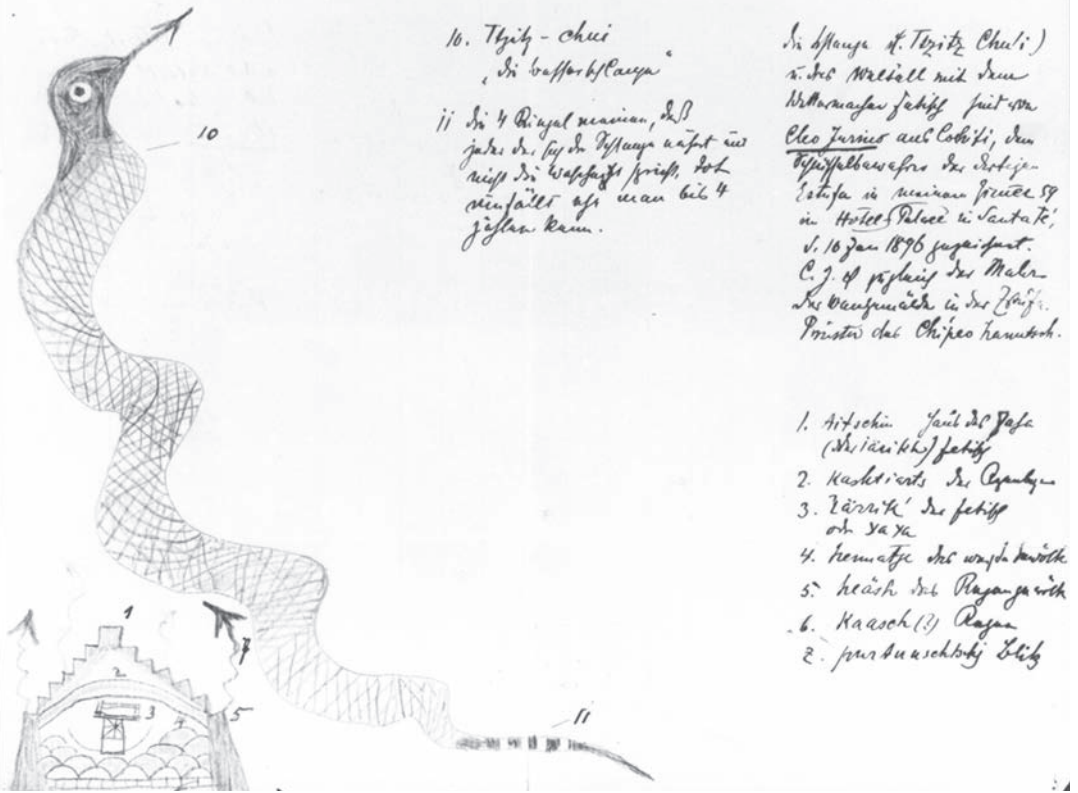 10. Ttzitz - chui
„die Wasserschlange“
11 die 4 Ringel meinen, daß
jeder der sich der Schlange nähert und
nicht die Wahrheit spricht, tot
ehe man bis 4
zählen kann.
die Schlange Tzitz Chui)
u. das Weltall mit dem
Wettermacher Fetisch sind von
Cleo Jurino aus Cochiti, dem
der dortigen
Estufa in meinem Zimmer 59
in Hotel Palace in Santa Fé,
d. 10 Jan 1896 gezeichnet.
C. J. ist zugleich der Maler
der Wandgemälde in der Estufa.
Priester des Chipeo Nanutsch.
1. Aitschin Haus des Yaya
fetisch
2. Kashtiarts der Regenbogen
3. Yärrik' der fetisch
oder Yaya
4. Nematje das weiße Gewölk
5. Neäsh das Regengewölk
6. Kaasch (?) Regen
7. purtunschtschj Blitz
10
1
2
3
4
5
7
11